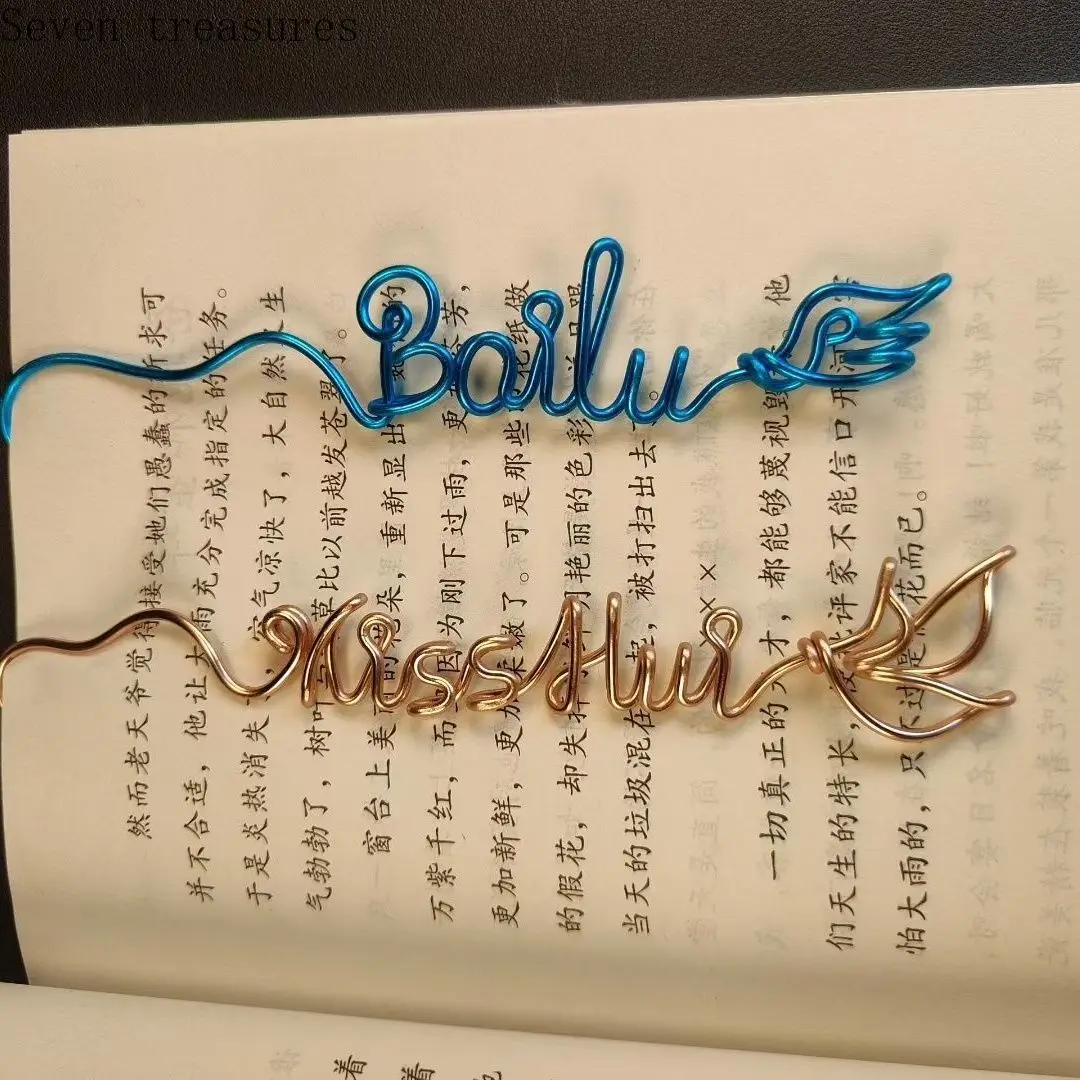 Seven treasures
Bailu
MissHui
然而老天爷觉得接受她们愚蠢的祈求可
并不合适，他让大雨充分完成指定的任务。
于是炎热消失，空气凉快了，大自然生
气勃勃了，树叶草比以前越发苍翠了。
窗台上美的花朵，重新显出的
万紫千红，而因为刚下过雨，更芬芳，
更加新鲜，更加柔嫩了。可是那些花纸做
的假花，却失艳丽的色彩跟
当天的垃圾混在一起，被打扫出去
××
一切真正的天才，都能够蔑视毁他
们天生的特长，批评家不能信口开河
怕大雨的，只不过是花而已。
着
着